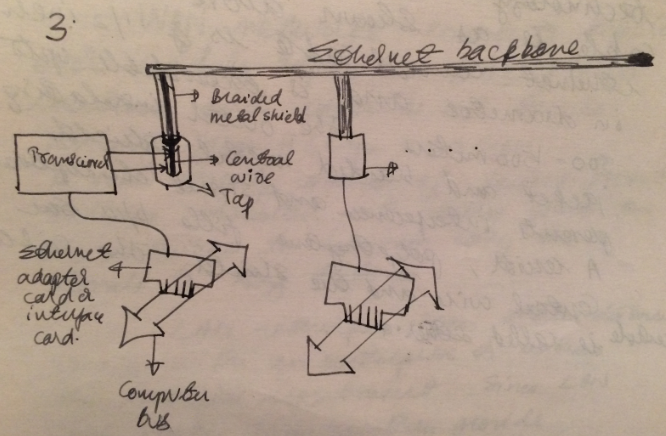 3.
Ethernet backbone
Braided
metal shield
Central
wire
Tap
. . . . .
Ethernet
adapter
card or
interface
card.
Computer
bus